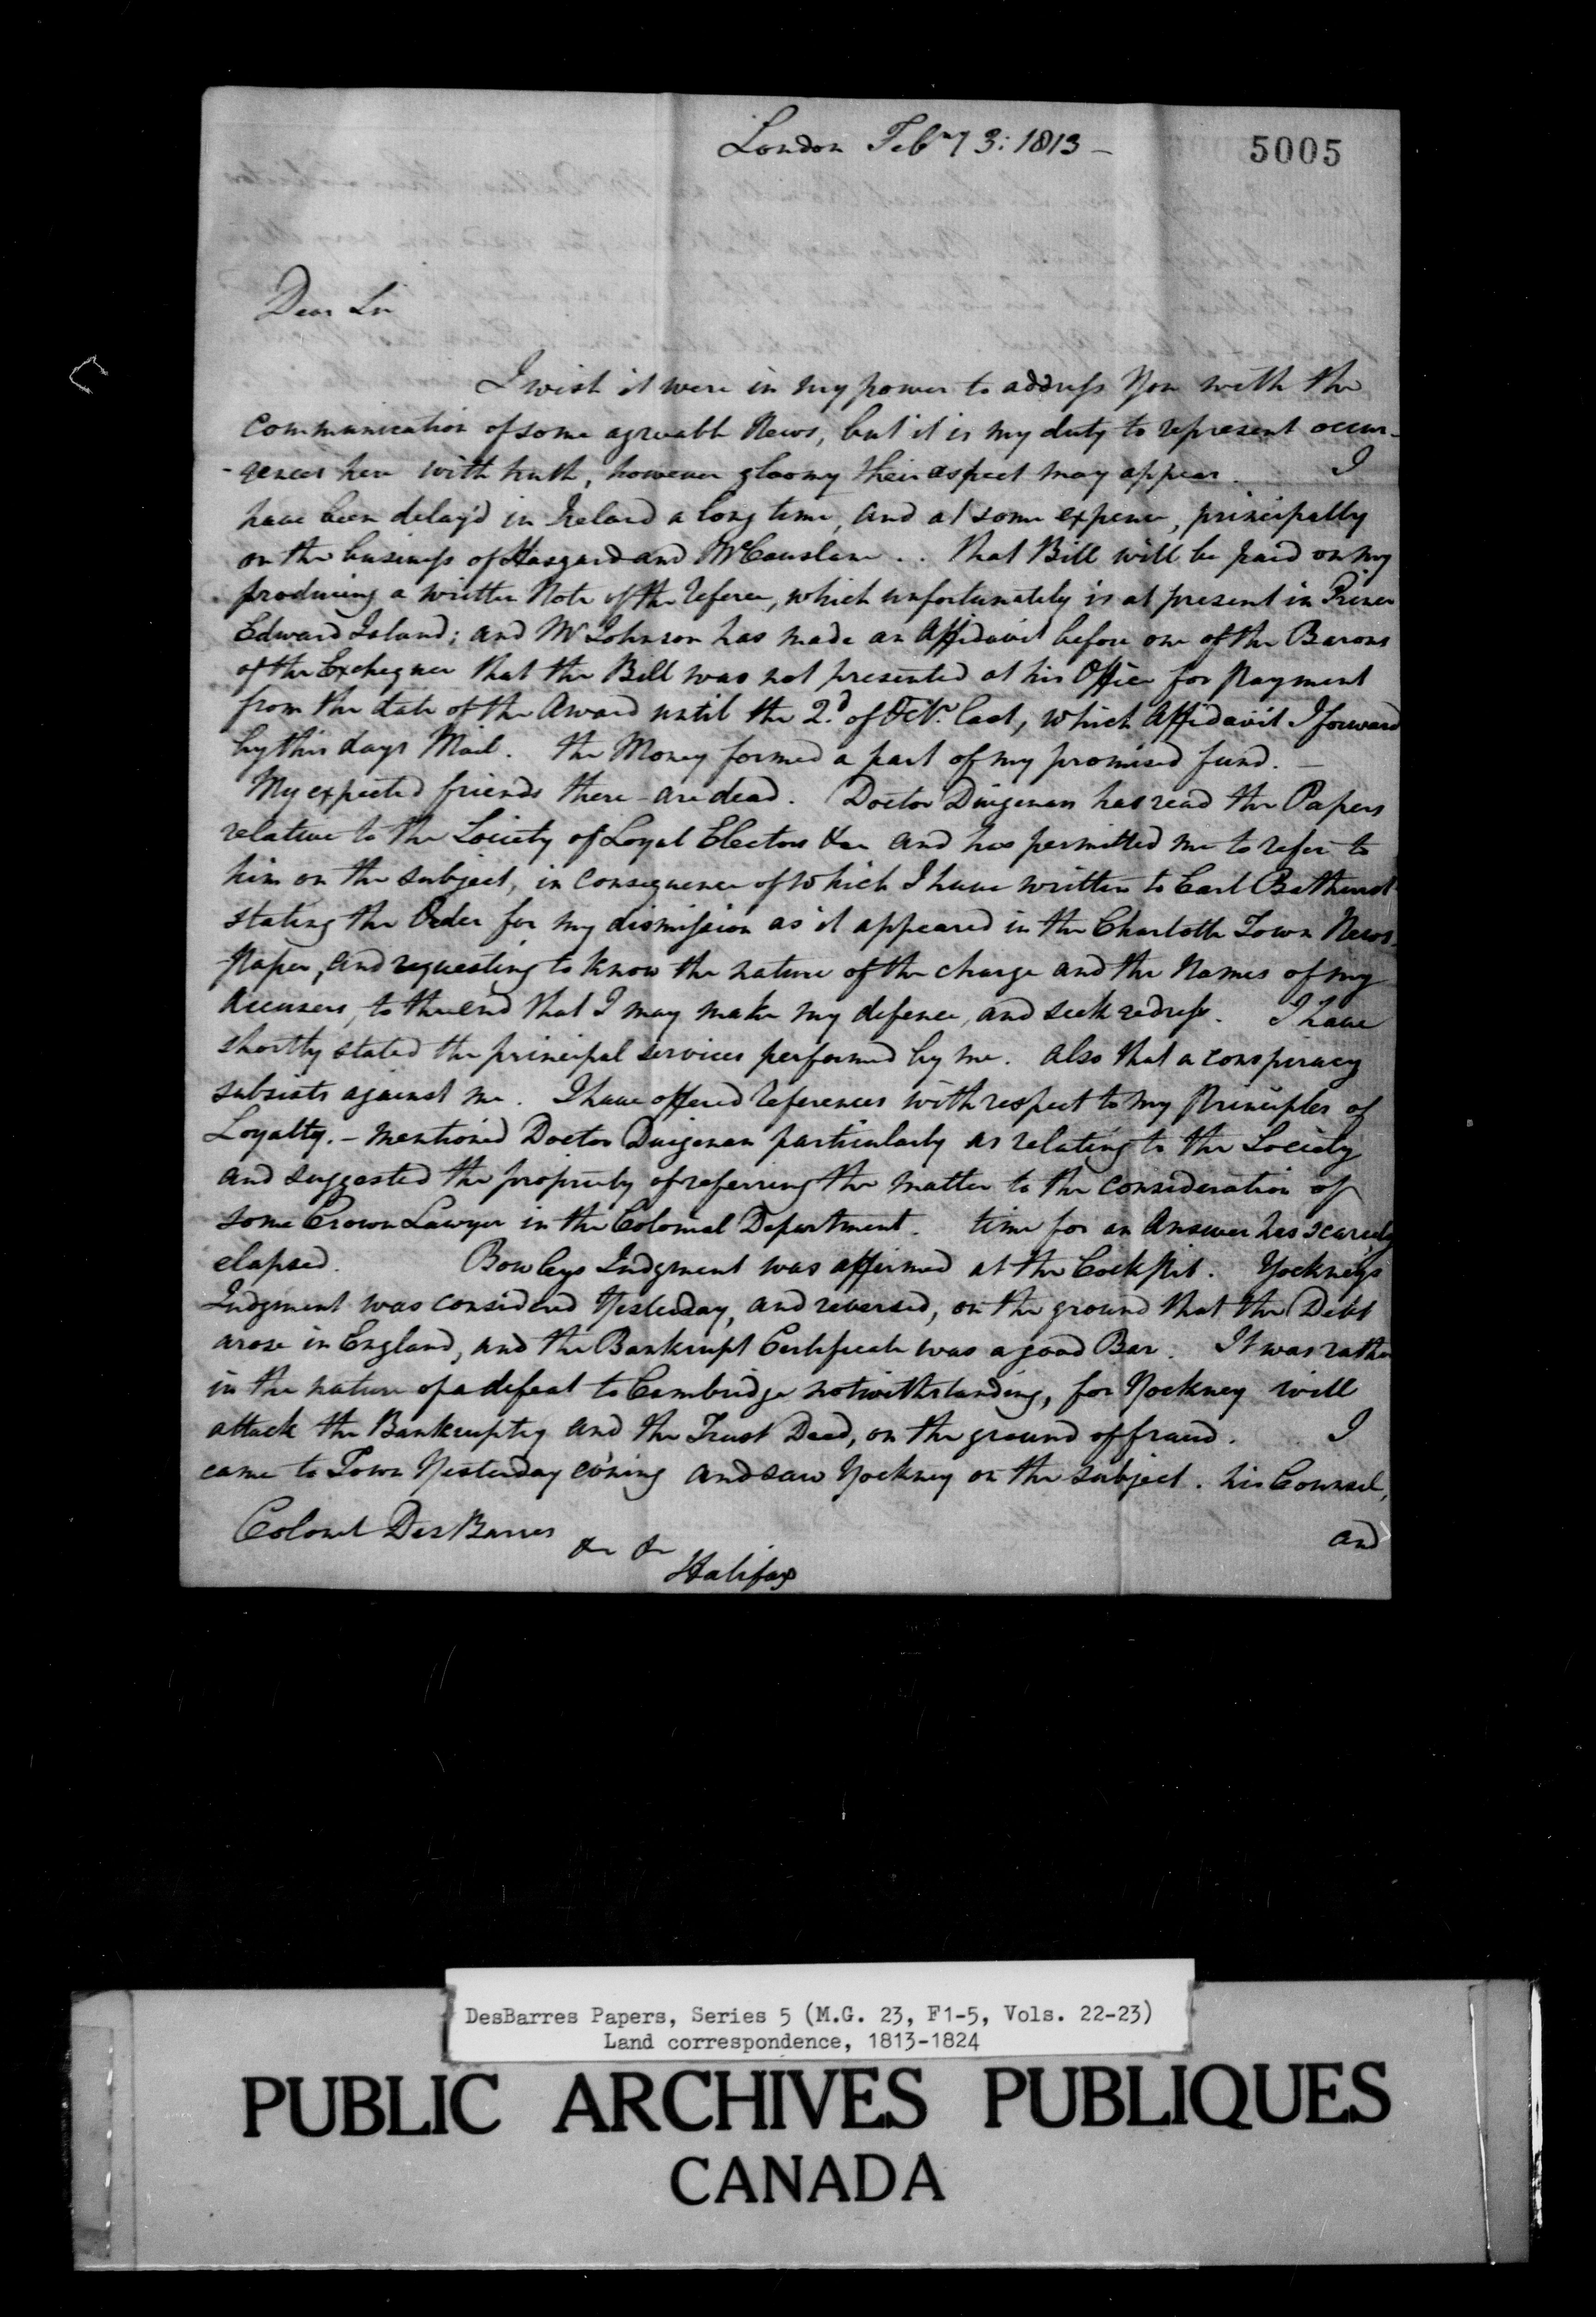 London Feb^ry 3: 1813 -
5005
Dear Sir
I wish it were in my power to address you with the
communication of some agreeable News, but it is my duty to represent occur-
-rences here with truth, however gloomy their aspect may appear. I
have been delay'd in Ireland a long time, and at some expence, principally
on the business of Hasgard and McCauslane .. that Bill will be paid on my
producing a written Note of the referee, which unfortunately is at present in Prince
Edward Island; and Mr Johnson has made an Affidavit before one of the Barons
of the Exchequer that the Bill was not presented at his Office for Payment
from the date of the Award until the 2.d of Feb.y last, which Affidavit I forward
by this days Mail. the Money formed a part of my promised fund. —
My expected friends there are dead. Doctor Duigenan has read the Papers
relative to the Society of Loyal Electors &ca and has permitted me to refer to
him on the subject, in consequence of which I have written to Earl Bathurst
stating the Order for my dismission as it appeared in the Charlotte Town News-
-Paper, and requesting to know the nature of the charge and the Names of my
Accusers, to the end that I may make my defence, and seek redress. I have
shortly stated the principal services performed by me. also that a conspiracy
subsists against me. I have offered references with respect to my Principles of
Loyalty. - mentioned Doctor Duigenan particularly as relating to the Society
and suggested the propriety of referring the matter to the consideration of
some Crown Lawyer in the Colonial Department. time for an Answer has scarcely
elapsed. Bowleys Judgment was affirmed at the Cockpit. Yockneys
Judgment was considered Yesterday, and reversed, on the ground that the Debt
arose in England, and the Bankrupt Certificate was a good Bar. It was rather
in the nature of a defeat to Cambridge notwithstanding, for Yockney will
attack the Bankruptcy and the Trust Deed, on the ground of fraud. I
came to Town Yesterday ev'ning and saw Yockney on the subject. his Counsel,
and
Colonel DesBarres
&c &c
Halifax
DesBarres Papers, Series 5 (M.G. 23, F1-5, Vols. 22-23)
Land correspondence, 1813-1824
PUBLIC ARCHIVES PUBLIQUES
CANADA